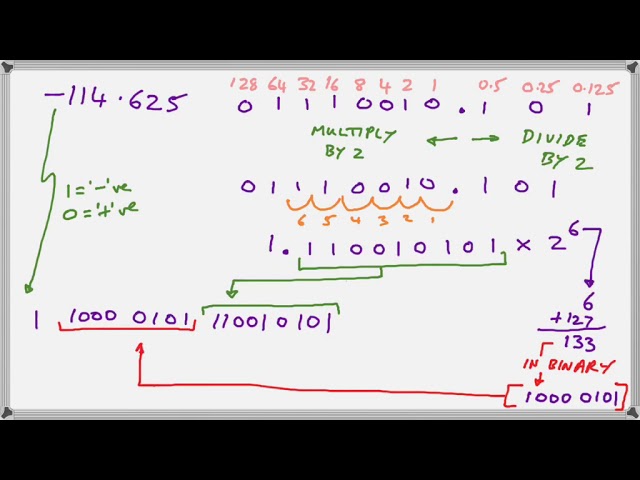 128 64 32 16 8 4 2 1 0.5 0.25 0.125
-114.625 0 1 1 1 0 0 1 0 . 1 0 1
MULTIPLY BY 2 ← → DIVIDE BY 2
1 = '-'ve
0 = '+'ve
0 1 1 1 0 0 1 0 . 1 0 1
6 5 4 3 2 1
1 . 1 1 0 0 1 0 1 0 1 × 2^6
6
+127
133
1 1000 0101 110010101
IN BINARY
[1000 0101]